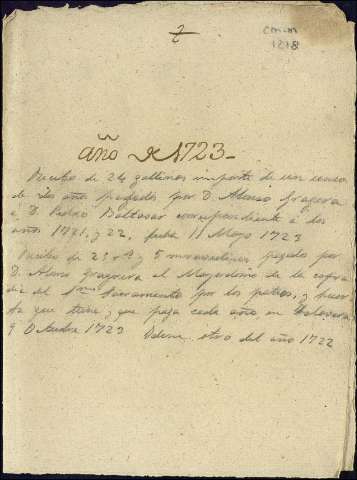 2
CM-M
1218
año de 1723-
Recibo de 24 gallinas importe de un censo
de dos años pagados por D. Alonso Gragera
á D. Pedro Baltasar correspondiente á los
años 1721, y 22, fecha 11 Mayo 1723
Recibo de 23 rs y 5 maravedises pagado por
D. Alonso Gragera al Mayordomo de la cofra
dia del Smo Sacramento por los patios, y huer
ta que tiene, y que paga cada año en Talavera
9 Octubre 1723 Idem otro del año 1722